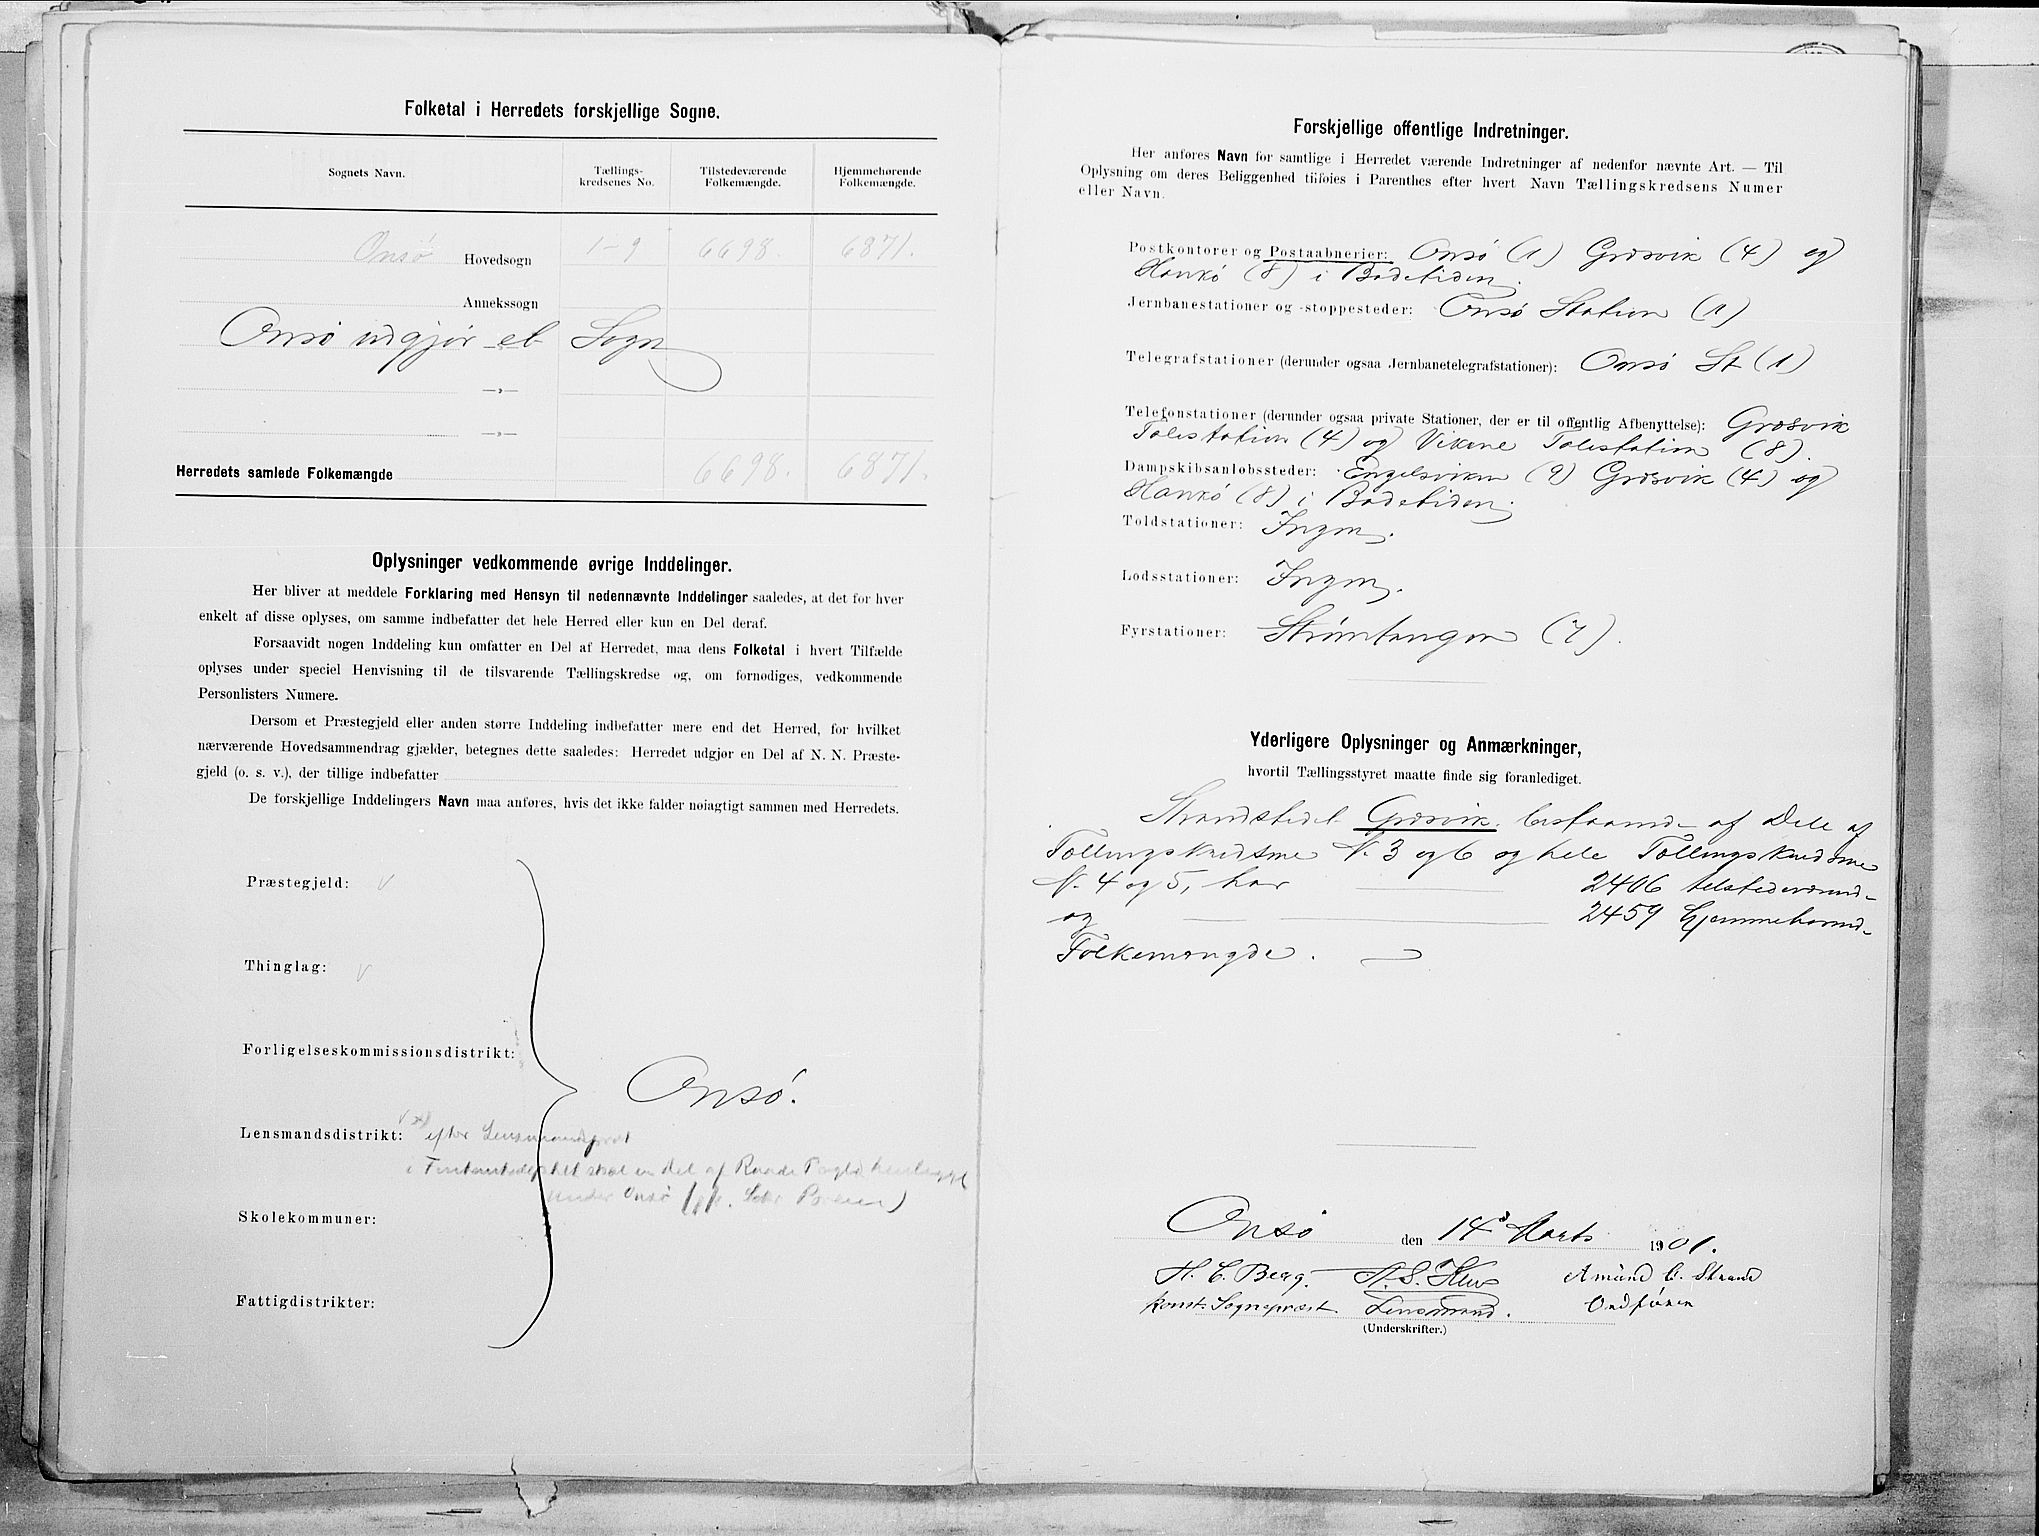 Folketal i Herredets forskjellige Sogne.
Sognets Navn.
Tællings-
kredsenes No.
Tilstedeværende
Folkemængde.
Hjemmehørende
Folkemængde.
Onsø Hovedsogn 1-9 6698. 6871.
Annekssogn
Onsø udgjør et Sogn
—»—
—»—
Herredets samlede Folkemængde 6698. 6871.
Oplysninger vedkommende øvrige Inddelinger.
Her bliver at meddele Forklaring med Hensyn til nedennævnte Inddelinger saaledes, at det for hver
enkelt af disse oplyses, om samme indbefatter det hele Herred eller kun en Del deraf.
Forsaavidt nogen Inddeling kun omfatter en Del af Herredet, maa dens Folketal i hvert Tilfælde
oplyses under speciel Henvisning til de tilsvarende Tællingskredse og, om fornødiges, vedkommende
Personlisters Numere.
Dersom et Præstegjeld eller anden større Inddeling indbefatter mere end det Herred, for hvilket
nærværende Hovedsammendrag gjælder, betegnes dette saaledes: Herredet udgjør en Del af N. N. Præste-
gjeld (o. s. v.), der tillige indbefatter
De forskjellige Inddelingers Navn maa anføres, hvis det ikke falder nøiagtigt sammen med Herredets.
Præstegjeld: v
Thinglag: v
Forligelseskommissionsdistrikt:
Onsø.
Lensmandsdistrikt: efter Lensmandsprot
en Del af Raade
under Onsø
Skolekommuner:
Fattigdistrikter:
Forskjellige offentlige Indretninger.
Her anføres Navn for samtlige i Herredet værende Indretninger af nedenfor nævnte Art. — Til
Oplysning om deres Beliggenhed tilføies i Parenthes efter hvert Navn Tællingskredsens Numer
eller Navn.
Postkontorer og Postaabnerier: Onsø (1) Græsvik (4) og
Hankø (8) i Badetiden.
Jernbanestationer og -stoppesteder: Onsø Station (1)
Telegrafstationer (derunder ogsaa Jernbanetelegrafstationer): Onsø St (1)
Telefonstationer (derunder ogsaa private Stationer, der er til offentlig Afbenyttelse): Græsvik
Talestation (4) og Vikene Talestation (8).
Dampskibsanløbssteder: Engelsviken (9) Græsvik (4) og
Hankø (8) i Badetiden.
Toldstationer: Ingen.
Lodsstationer: Ingen.
Fyrstationer: Strømtangen (7).
Yderligere Oplysninger og Anmærkninger,
hvortil Tællingsstyret maatte finde sig foranlediget.
Strandstedet Græsvik, bestaaende af Dele af
Tællingskredsene N. 3 og 6 og hele Tællingskredsene
N. 4 og 5, har 2406 tilstedeværende
og 2459 hjemmehørende
Folkemængde.
Onsø den 14de Marts 1901.
H. C. Berg. Amund C. Strand
konst. Sogneprest. Lensmand. Ordfører
(Underskrifter.)